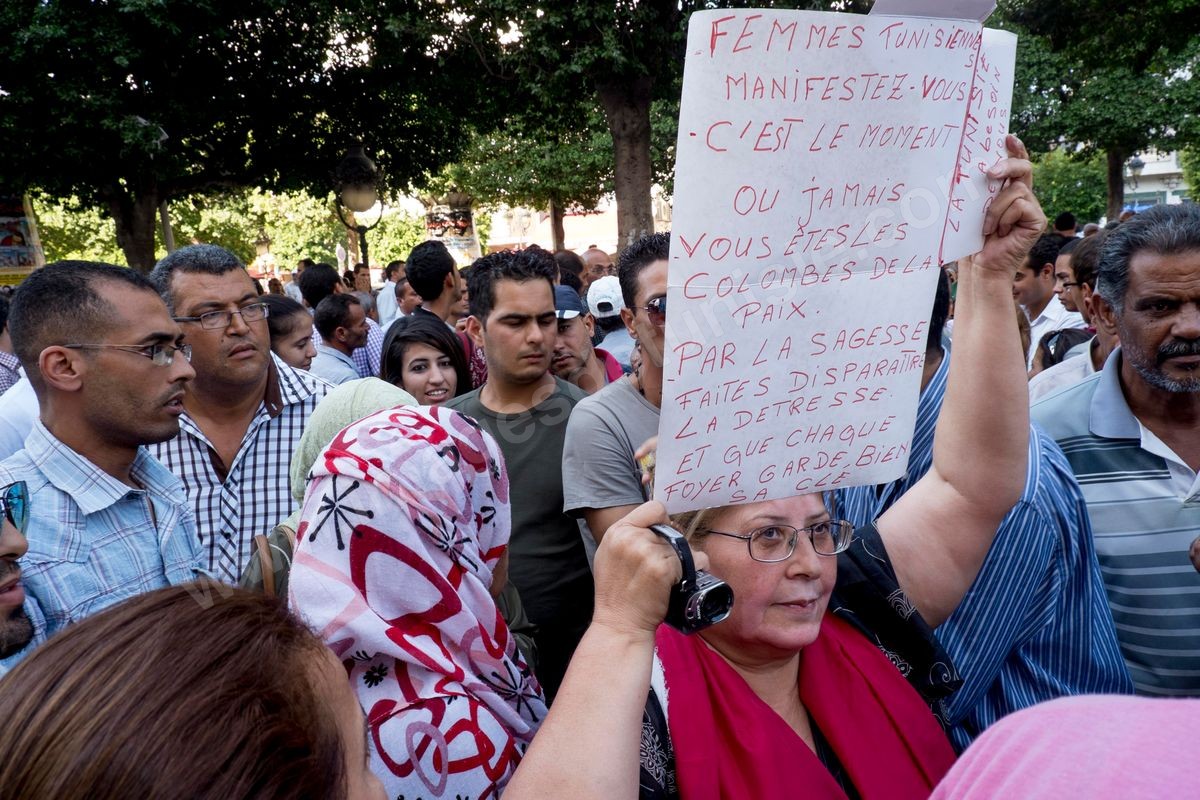 FEMMES TUNISIENNES
MANIFESTEZ-VOUS
- C'EST LE MOMENT
OU JAMAIS
VOUS ÊTES LES
COLOMBES DE LA
PAIX.
PAR LA SAGESSE
FAITES DISPARAÎTRE
LA DETRESSE.
ET QUE CHAQUE
FOYER GARDE BIEN
SA CLÉ
LA TUNISIE
A BESOIN
DE VOUS